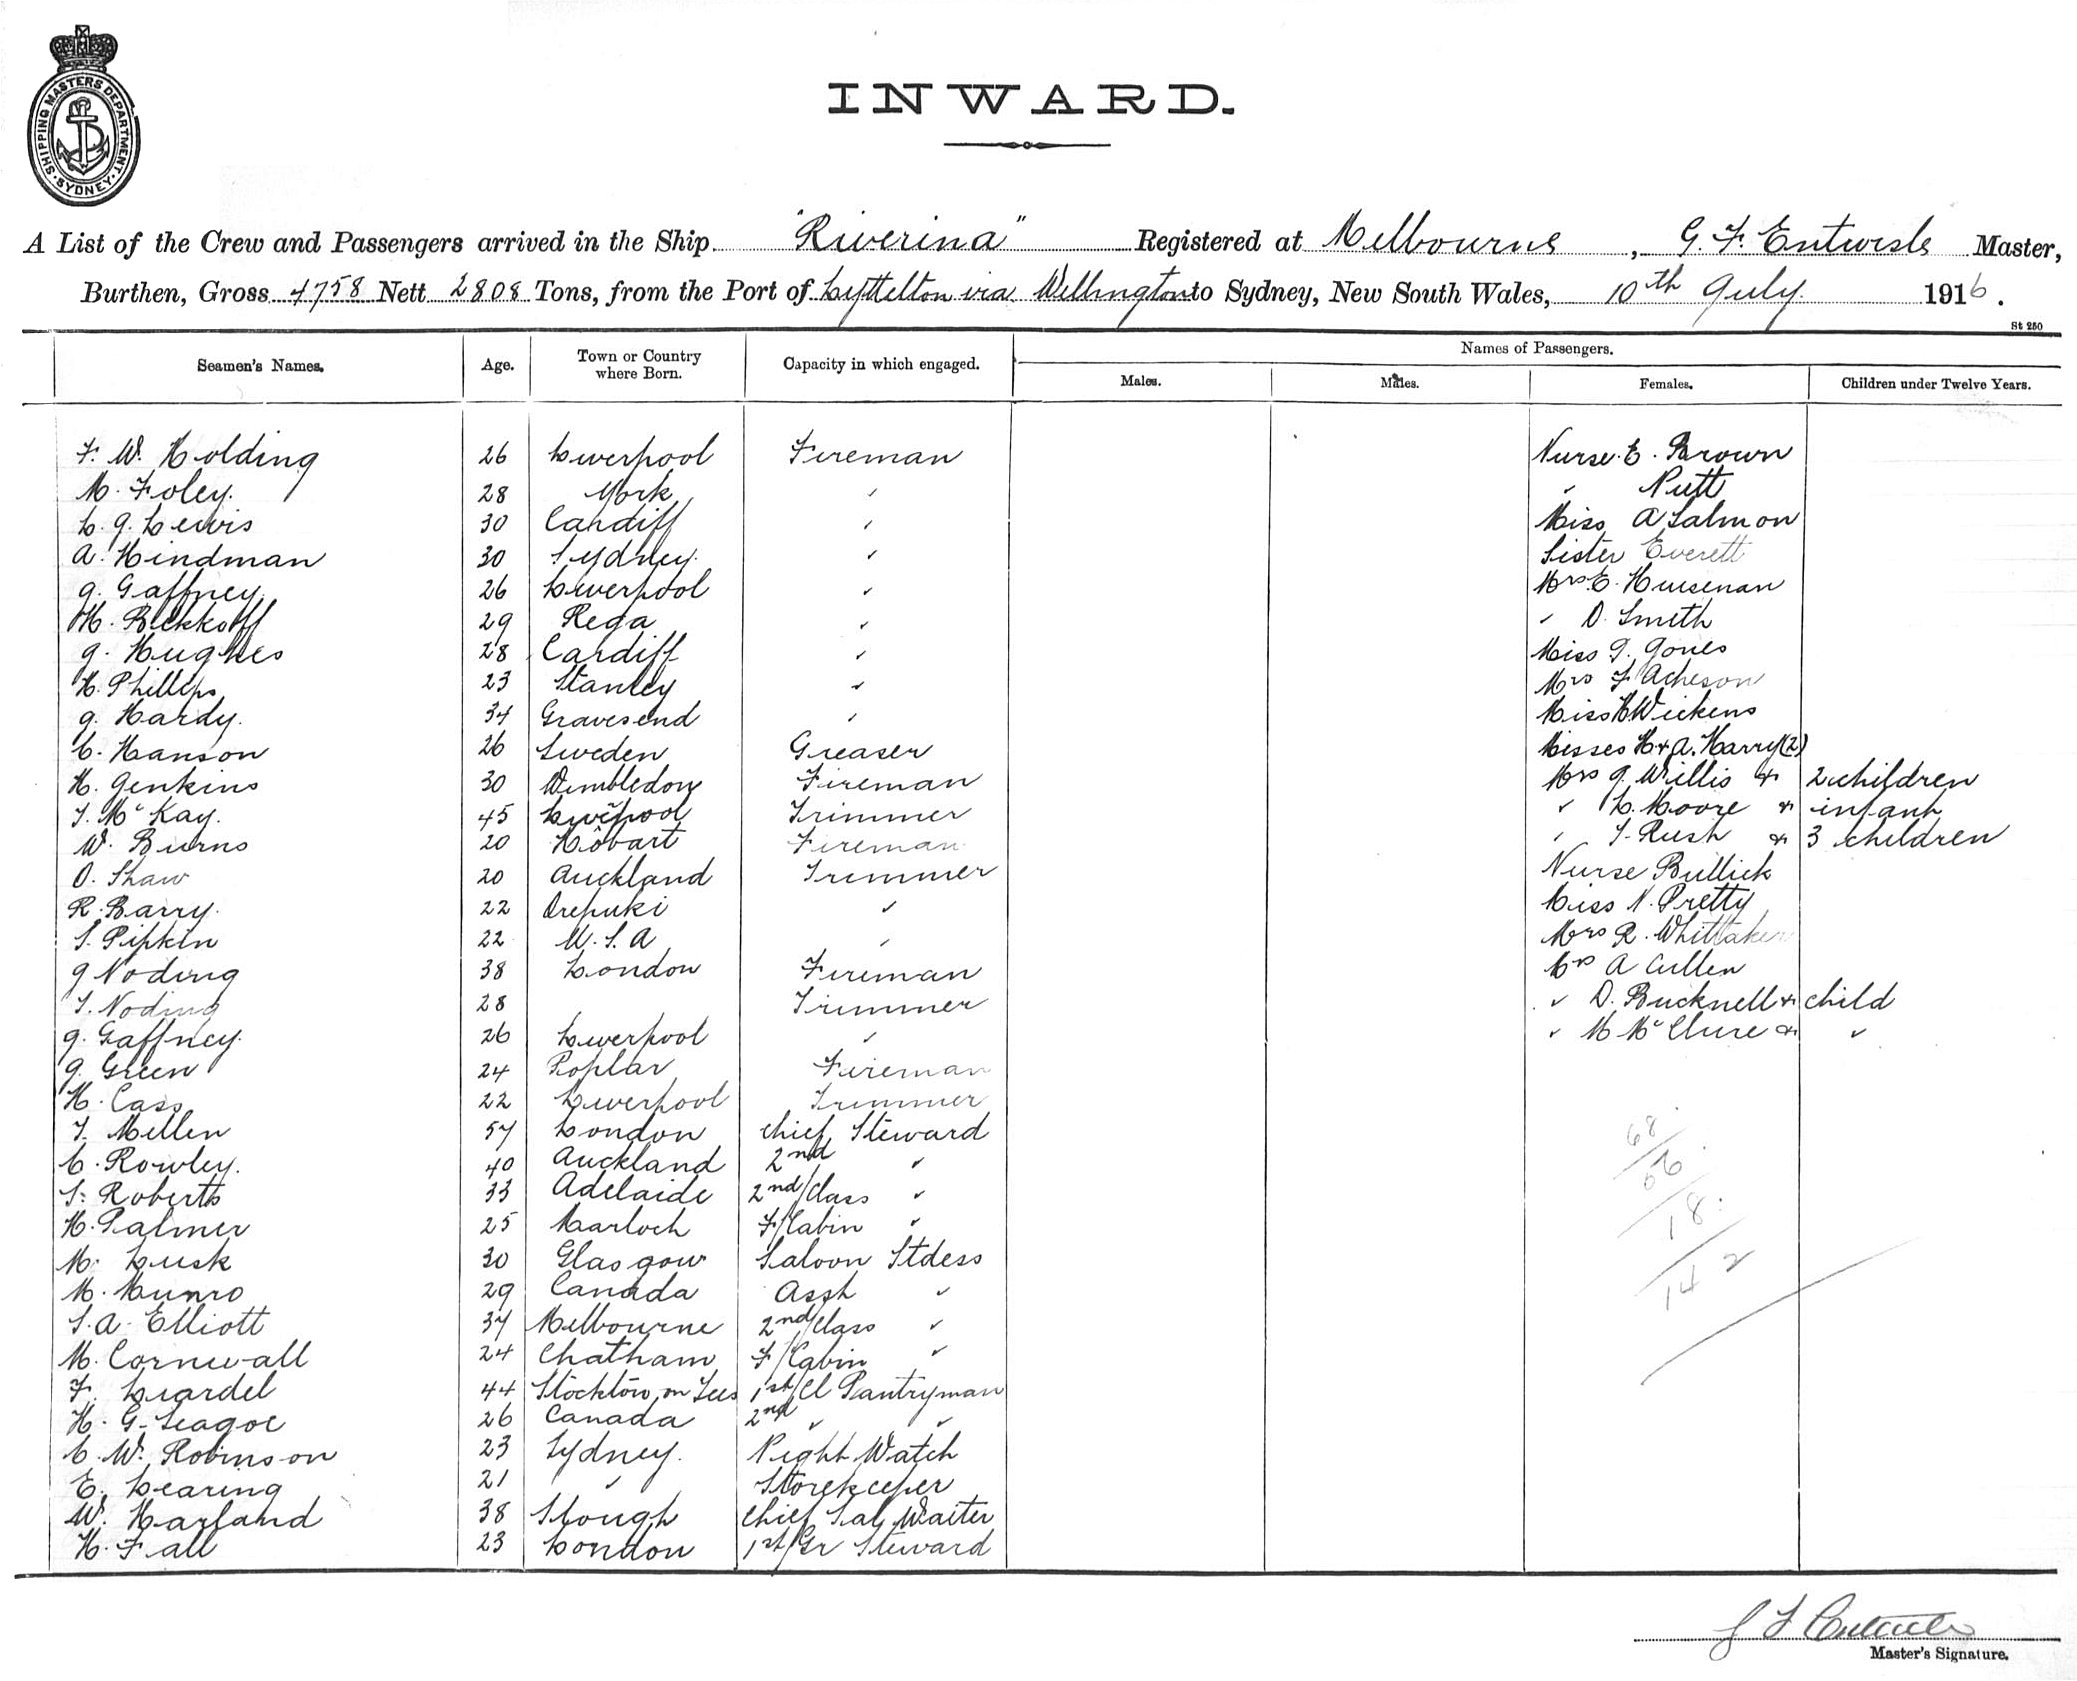 SHIPPING MASTERS DEPARTMENT. SYDNEY.
INWARD.
A List of the Crew and Passengers arrived in the Ship "Riverina" Registered at Melbourne, G. F. Entwisle Master,
Burthen, Gross 4758 Nett 2808 Tons, from the Port of Lyttelton via Wellington to Sydney, New South Wales, 10th July 1916.
St 250
Seamen's Names. Age. Town or Country where Born. Capacity in which engaged. Names of Passengers.
Males. Males. Females. Children under Twelve Years.
F. W. Holding 26 Liverpool Fireman Nurse E. Brown
M. Foley. 28 York " " Nutt
L. J. Lewis 30 Cardiff " Miss A Salmon
A. Hindman 30 Sydney. " Sister Everett
J. Gaffney 26 Liverpool " Mrs E. Huisenan
H. Bekkoff 29 Rega " " D. Smith
J. Hughes 28 Cardiff " Miss J. Jones
H. Phillips 23 Stanley " Mrs F Acheson
J. Hardy. 34 Gravesend " Miss H Wickens
C. Hanson 26 Sweden Greaser Misses H & A. Harry (2)
H. Jenkins 30 Wimbledon Fireman Mrs J. Willis & 2 children
T. McKay. 45 Liverpool Trimmer " L. Moore & infant
W. Burns 20 Hobart Fireman " T. Rush & 3 children
O. Shaw 20 Auckland Trimmer Nurse Bullick
R. Barry. 22 Orepuki " Miss N. Pretty
S. Pipkin 22 U.S.A " Mrs R. Whittaker
J Noding 38 London Fireman Mrs A Cullen
T. Noding 28 Trimmer " D. Bucknell & child
J. Gaffney. 26 Liverpool " " M McClure & "
J. Green 24 Poplar Fireman
H. Cass 22 Liverpool Trimmer
T. Mellen 57 London Chief Steward
C. Rowley. 40 Auckland 2nd "
S. Roberts 33 Adelaide 2nd/Class "
H. Palmer 25 Marloch F/Cabin "
M. Lusk 30 Glasgow Saloon Stdess
M. Munro 29 Canada Asst "
S. A. Elliott 37 Melbourne 2nd/Class "
M. Cornwall 24 Chatham F/Cabin "
F. Liardel 44 Stockton on Tees 1st/Cl Pantryman
H. G. Seagoe 26 Canada 2nd " "
C. W. Robinson 23 Sydney. Night Watch
E. Learing 21 " Storekeeper
W. Harland 38 Slough Chief Sal Waiter
H. Fall 23 London 1st/Gr Steward
68
56
18
142
Master's Signature.